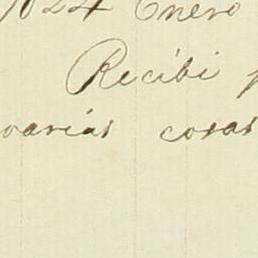 1824 Enero
Recibi p
varias cosas